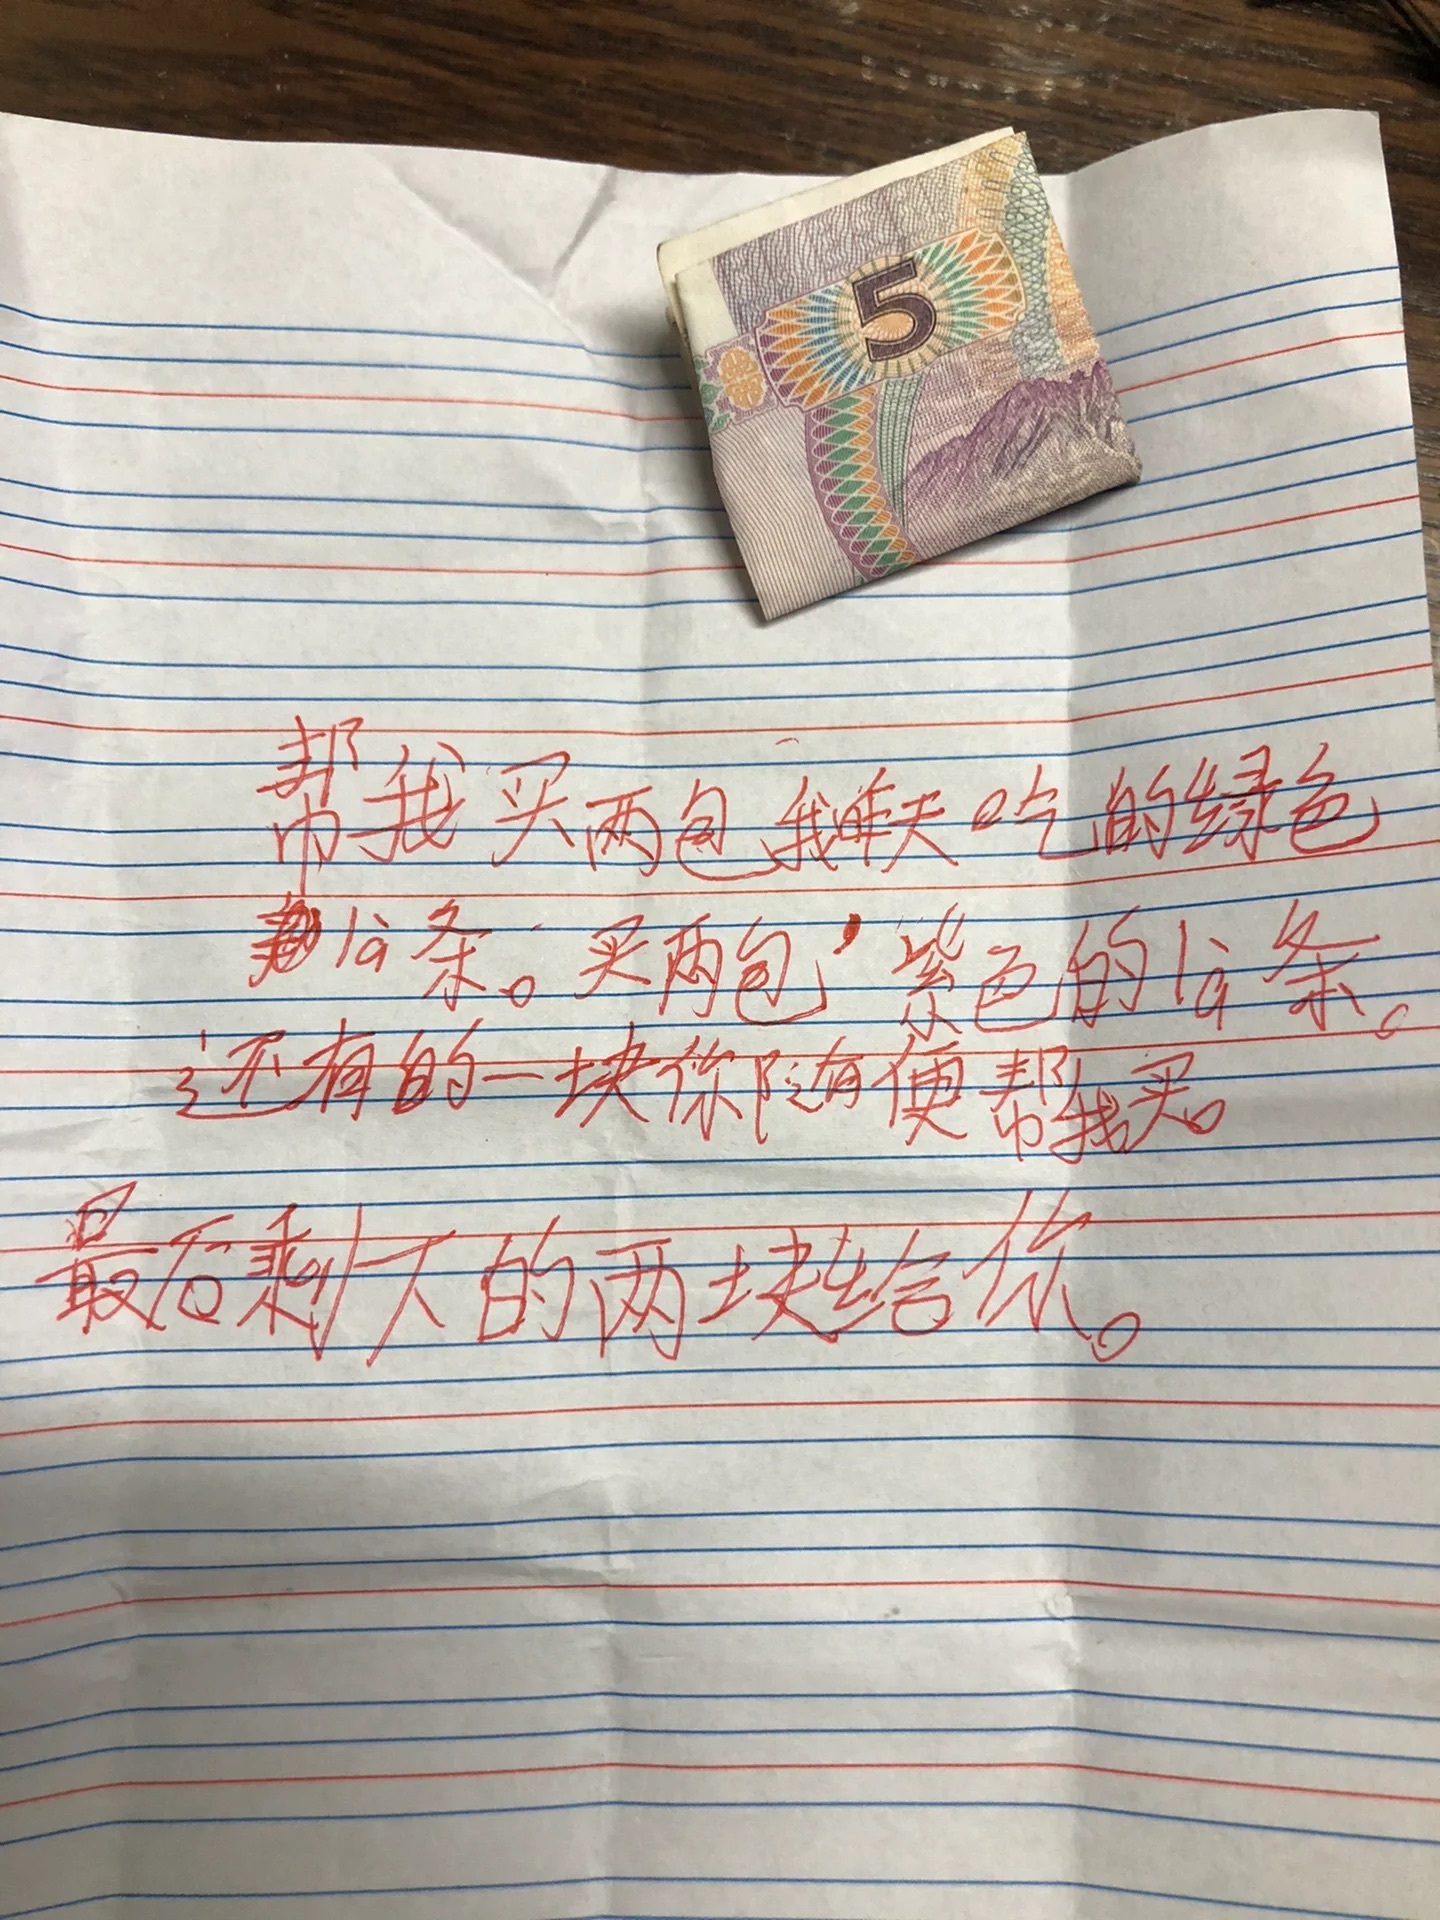 5
帮我买两包我昨天吃的绿色
là条。买两包,紫色的là条。
还有的一块你随便帮我买。
最后剩下的两块给你。